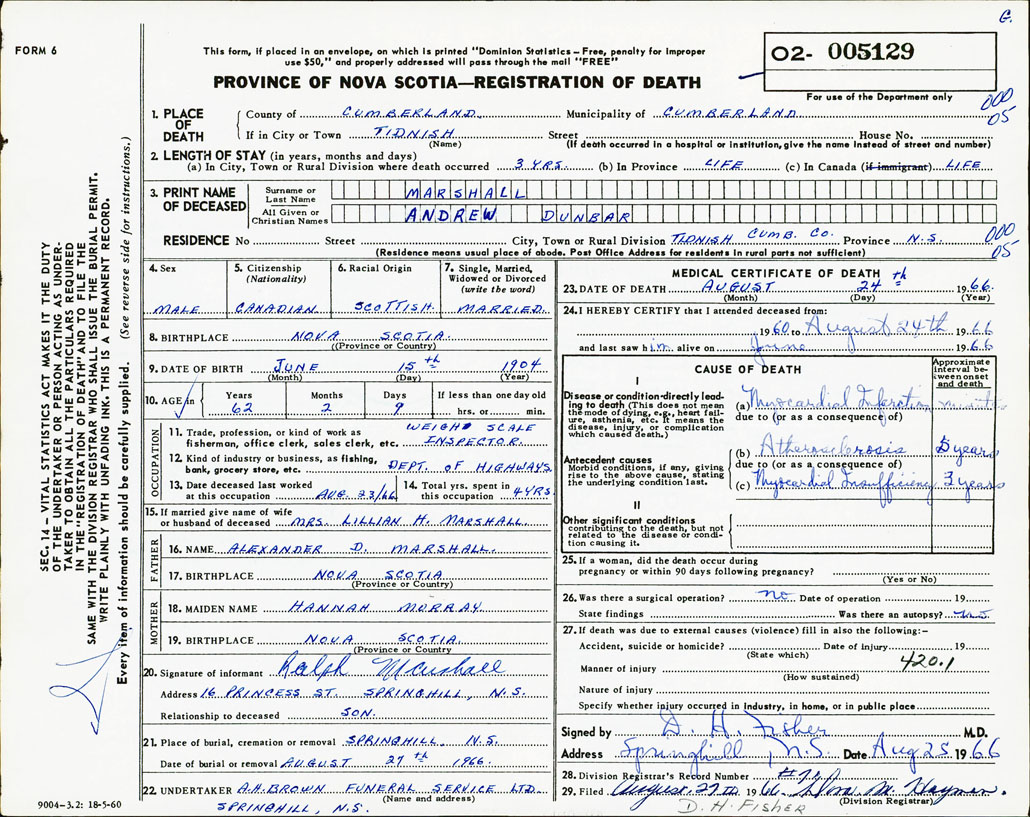 G.
FORM 6
This form, if placed in an envelope, on which is printed "Dominion Statistics – Free, penalty for improper
use $50," and properly addressed will pass through the mail "FREE"
O2- 005129
PROVINCE OF NOVA SCOTIA—REGISTRATION OF DEATH
For use of the Department only
000
05
1. PLACE OF DEATH
County of CUMBERLAND Municipality of CUMBERLAND
If in City or Town TIDNISH Street House No.
(Name) (If death occurred in a hospital or institution, give the name instead of street and number)
2. LENGTH OF STAY (in years, months and days)
(a) In City, Town or Rural Division where death occurred 3 YRS. (b) In Province LIFE (c) In Canada (if immigrant) LIFE
3. PRINT NAME OF DECEASED
Surname or Last Name MARSHALL
All Given or Christian Names ANDREW DUNBAR
RESIDENCE No Street City, Town or Rural Division TIDNISH CUMB. CO. Province N.S.
000
05
(Residence means usual place of abode. Post Office Address for residents in rural parts not sufficient)
4. Sex
MALE
5. Citizenship (Nationality)
CANADIAN
6. Racial Origin
SCOTTISH
7. Single, Married, Widowed or Divorced (write the word)
MARRIED
8. BIRTHPLACE NOVA SCOTIA
(Province or Country)
9. DATE OF BIRTH JUNE 15th 1904
(Month) (Day) (Year)
10. AGE in Years Months Days If less than one day old
62 2 9 hrs. or min.
OCCUPATION
11. Trade, profession, or kind of work as fisherman, office clerk, sales clerk, etc. WEIGH SCALE INSPECTOR.
12. Kind of industry or business, as fishing, bank, grocery store, etc. DEPT. OF HIGHWAYS
13. Date deceased last worked at this occupation AUG. 23/66
14. Total yrs. spent in this occupation 4 YRS.
15. If married give name of wife or husband of deceased MRS. LILLIAN H. MARSHALL
FATHER
16. NAME ALEXANDER D. MARSHALL.
17. BIRTHPLACE NOVA SCOTIA
(Province or Country)
MOTHER
18. MAIDEN NAME HANNAH MURRAY
19. BIRTHPLACE NOVA SCOTIA
(Province or Country)
20. Signature of informant Ralph Marshall
Address 16 PRINCESS ST. SPRINGHILL, N.S.
Relationship to deceased SON.
21. Place of burial, cremation or removal SPRINGHILL, N.S.
Date of burial or removal AUGUST 27th 1966.
22. UNDERTAKER A.H. BROWN FUNERAL SERVICE LTD.
(Name and address)
SPRINGHILL, N.S.
MEDICAL CERTIFICATE OF DEATH
23. DATE OF DEATH AUGUST 24th 1966
(Month) (Day) (Year)
24. I HEREBY CERTIFY that I attended deceased from:
1960 to August 24th 1966
and last saw him alive on June 1966
CAUSE OF DEATH
Approximate interval between onset and death
I
Disease or condition directly leading to death (This does not mean the mode of dying, e.g., heart failure, asthenia, etc. It means the disease, injury, or complication which caused death.)
(a) Myocardial minutes
due to (or as a consequence of)
Antecedent causes
Morbid conditions, if any, giving rise to the above cause, stating the underlying condition last.
(b) Atherosclerosis 5 years
due to (or as a consequence of)
(c) Myocardial Insufficiency 3 years
II
Other significant conditions
contributing to the death, but not related to the disease or condition causing it.
25. If a woman, did the death occur during pregnancy or within 90 days following pregnancy?
(Yes or No)
26. Was there a surgical operation? no Date of operation 19
State findings Was there an autopsy? no
27. If death was due to external causes (violence) fill in also the following:–
Accident, suicide or homicide? Date of injury 19
(State which)
Manner of injury 420.1
(How sustained)
Nature of injury
Specify whether injury occurred in industry, in home, or in public place
Signed by D. H. Fisher M.D.
Address Springhill, N.S. Date Aug 25 1966
28. Division Registrar's Record Number
29. Filed August 27th 1966
(Division Registrar)
D. H. FISHER
SEC. 14 – VITAL STATISTICS ACT MAKES IT THE DUTY
OF THE UNDERTAKER OR PERSON ACTING AS UNDER-
TAKER TO OBTAIN ALL THE PARTICULARS REQUIRED
IN THE "REGISTRATION OF DEATH" AND TO FILE THE
SAME WITH THE DIVISION REGISTRAR WHO SHALL ISSUE THE BURIAL PERMIT.
WRITE PLAINLY WITH UNFADING INK. THIS IS A PERMANENT RECORD.
Every item of information should be carefully supplied. (See reverse side for instructions.)
9004–3.2: 18-5-60